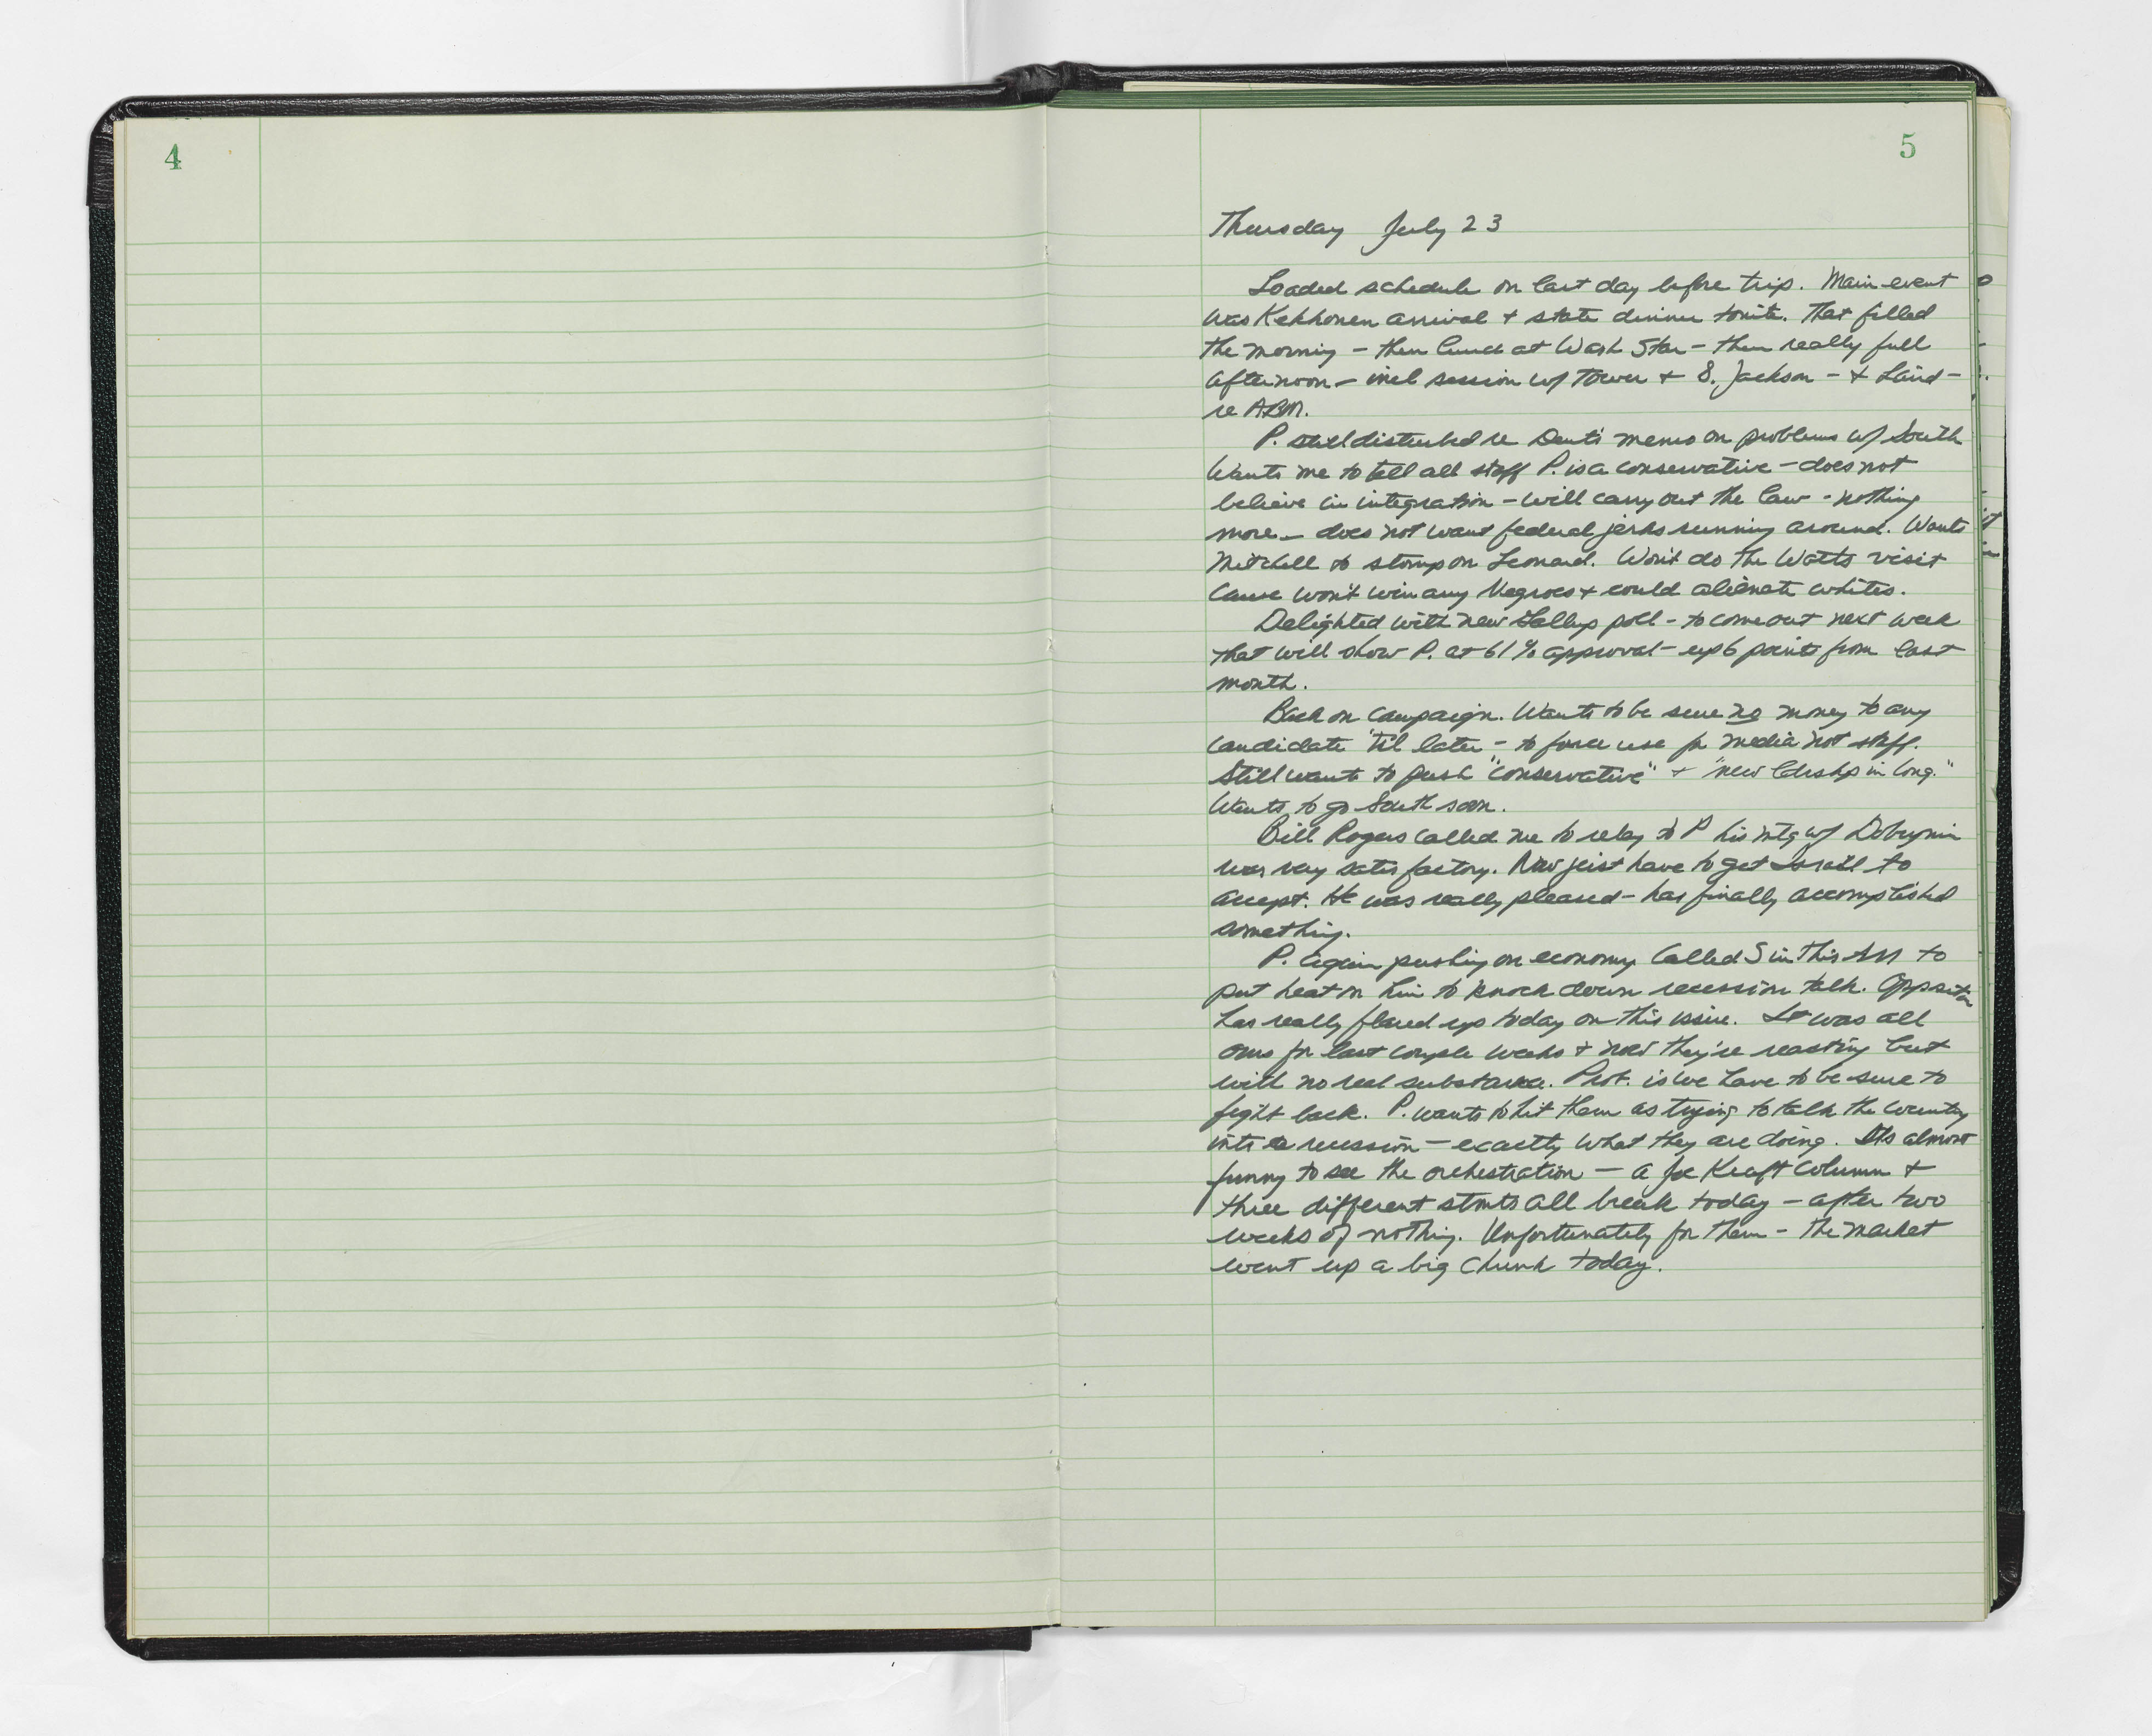 4
5
Thursday July 23
Loaded schedule on last day before trip. Main event
was Kekkonen arrival + state dinner tonite. That filled
the morning - then lunch at Wash Star - then really full
afternoon - incl session w/ Tower + S. Jackson - + Laird -
re ABM.
P. still disturbed re Dent's memo on problems w/ South
Wants me to tell all staff P. is a conservative - does not
believe in integration - will carry out the law - nothing
more - does not want federal jerks running around. Wants
Mitchell to stomp on Leonard. Won't do the Watts visit
cause won't win any Negroes + could alienate whites.
Delighted with new Gallup poll - to come out next week
that will show P. at 61% approval - up 6 points from last
month.
Back on campaign. Wants to be sure no money to any
candidate 'til later - to force use for media not staff.
Still wants to push "conservative" + "new ldrshp in Cong."
Wants to go South soon.
Bill Rogers called me to relay to P his mtg w/ Dobrynin
was very satisfactory. Now just have to get Israel to
accept. He was really pleased - has finally accomplished
something.
P. again pushing on economy Called S in this AM to
put heat on him to knock down recession talk. Opposition
has really flared up today on this issue. It was all
ours for last couple weeks + now they're reacting but
with no real substance. Prob. is we have to be sure to
fight back. P. wants to hit them as trying to talk the country
into a recession - exactly what they are doing. Its almost
funny to see the orchestration - a Joe Kraft column +
three different stmts all break today - after two
weeks of nothing. Unfortunately for them - the market
went up a big chunk today.